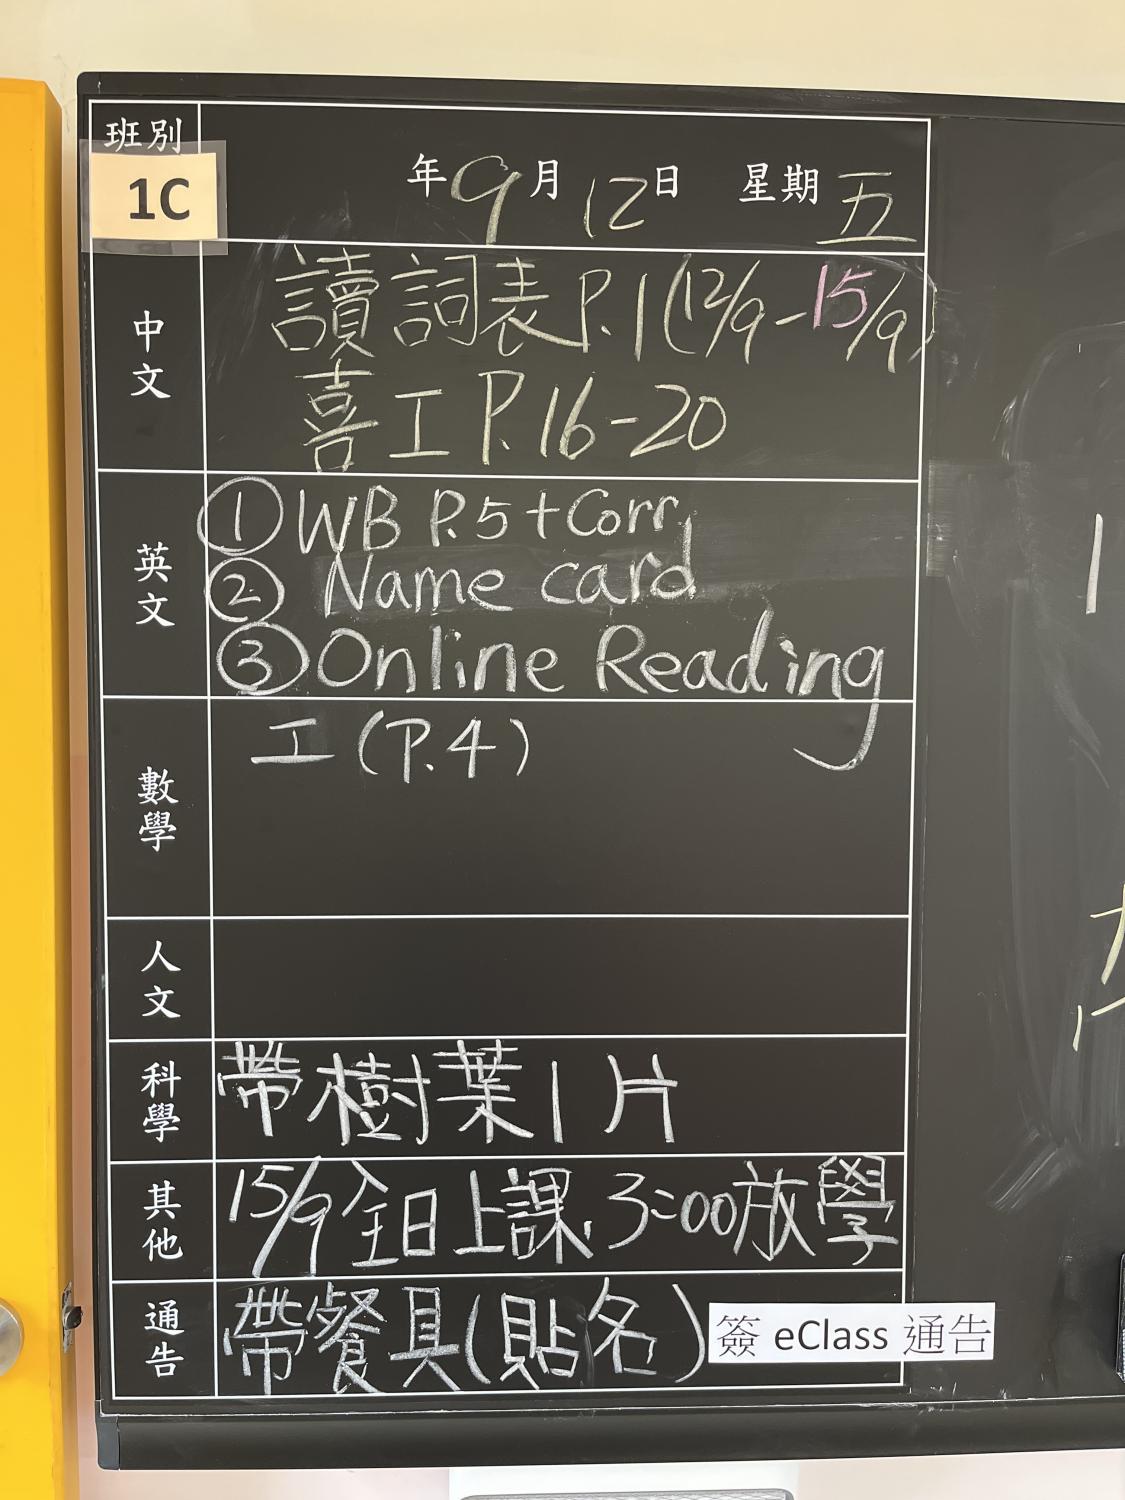 班別
1C
年9月12日 星期五
中文
讀詞表P.1(12/9-15/9)
喜工P.16-20
英文
① WB P.5+Corr.
② Name card
③ Online Reading
數學
工(P.4)
人文
科學
帶樹葉1片
其他
15/9全日上課,3:00放學
通告
帶餐具(貼名)
簽 eClass 通告